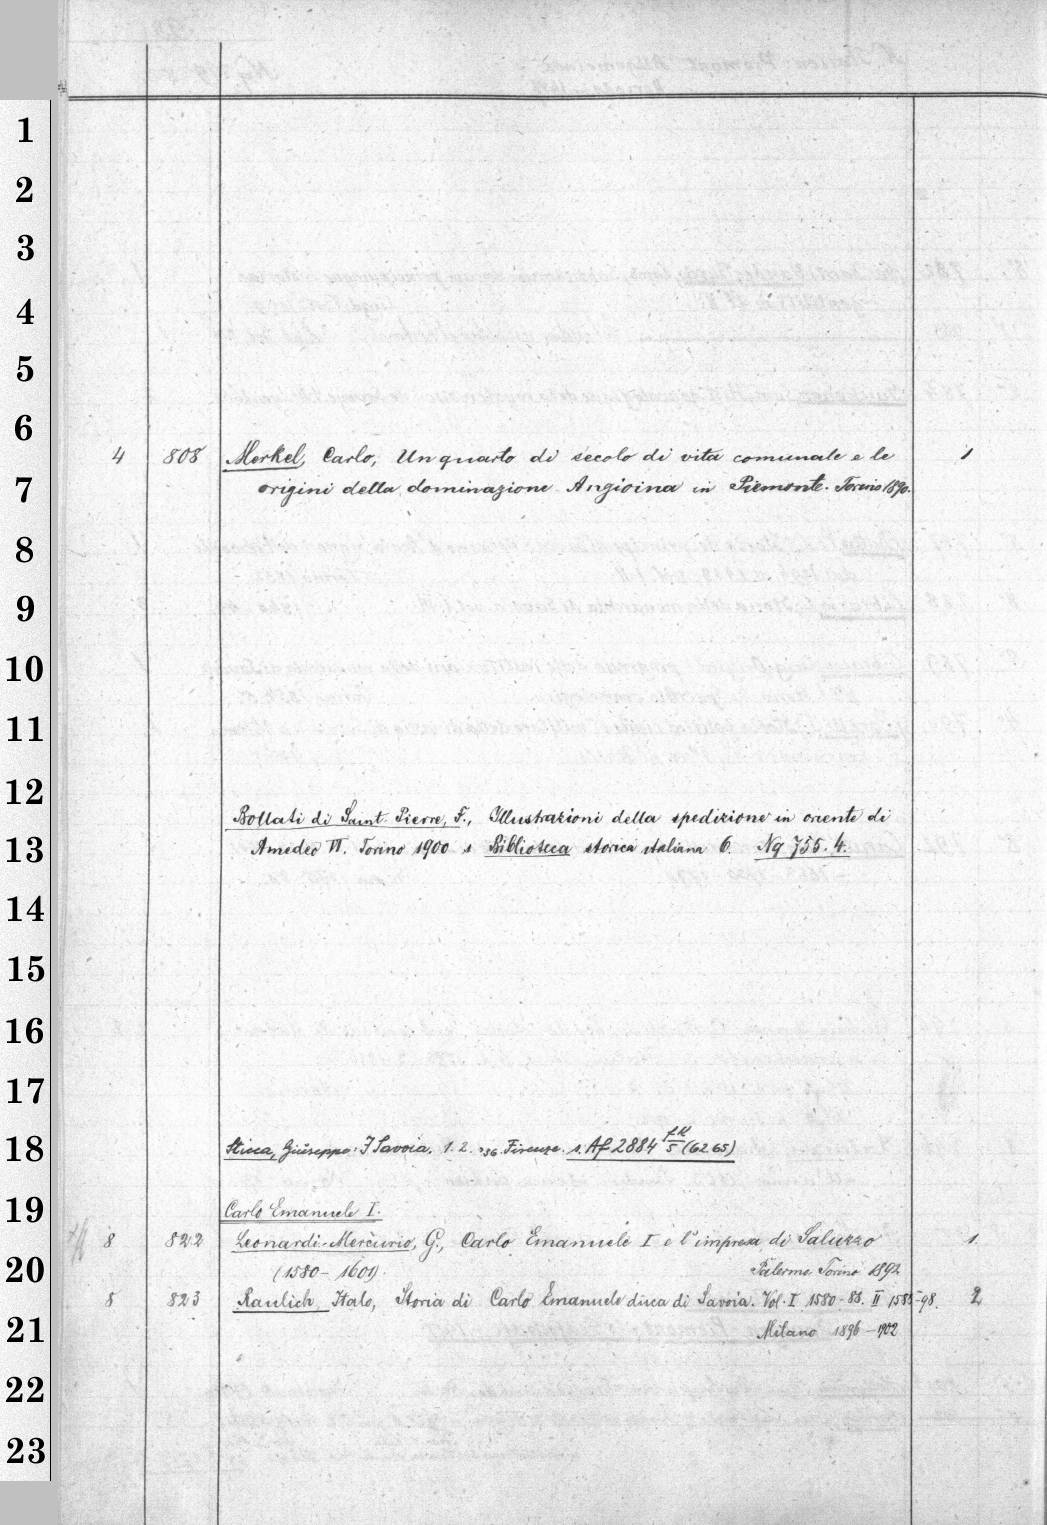 1
2
3
4
5
6
4 808 Merkel, Carlo, Un quarto di secolo di vita comunale e le 1
7
origini della dominazione Angioina in Piemonte. Torino 1890.
8
9
10
11
12
Bollati di Saint Pierre, F., Illustrazioni della spedizione in oriente di
13
Amedeo VI. Torino 1900 s Biblioteca storica italiana 6. Ng 755.4.
14
15
16
17
18
Sticca, Giuseppe: I Savoia. 1. 2. Firenze. s. Af 2884 5 (6265)
19
Carlo Emanuele I.
8 822 Leonardi-Mercurio, G., Carlo Emanuele I e l'impresa di Saluzzo 1.
20
(1580-1601). Palermo Torino 1892
8 823 Raulich Italo, Storia di Carlo Emanuele duca di Savoia. Vol. I 1580-88. II 1588-98. 2
21
Milano 1896-1902
22
23